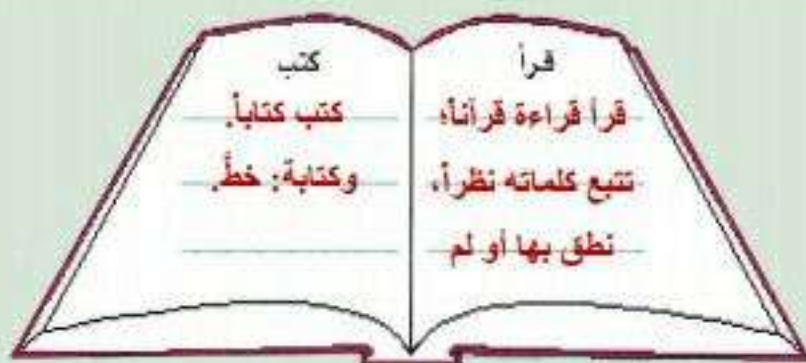 قرأ
قرأ قراءة قرآناً؛
تتبع كلماته نظراً،
نطق بها أو لم
كتب
كتب كتاباً.
وكتابة: خطَّ.